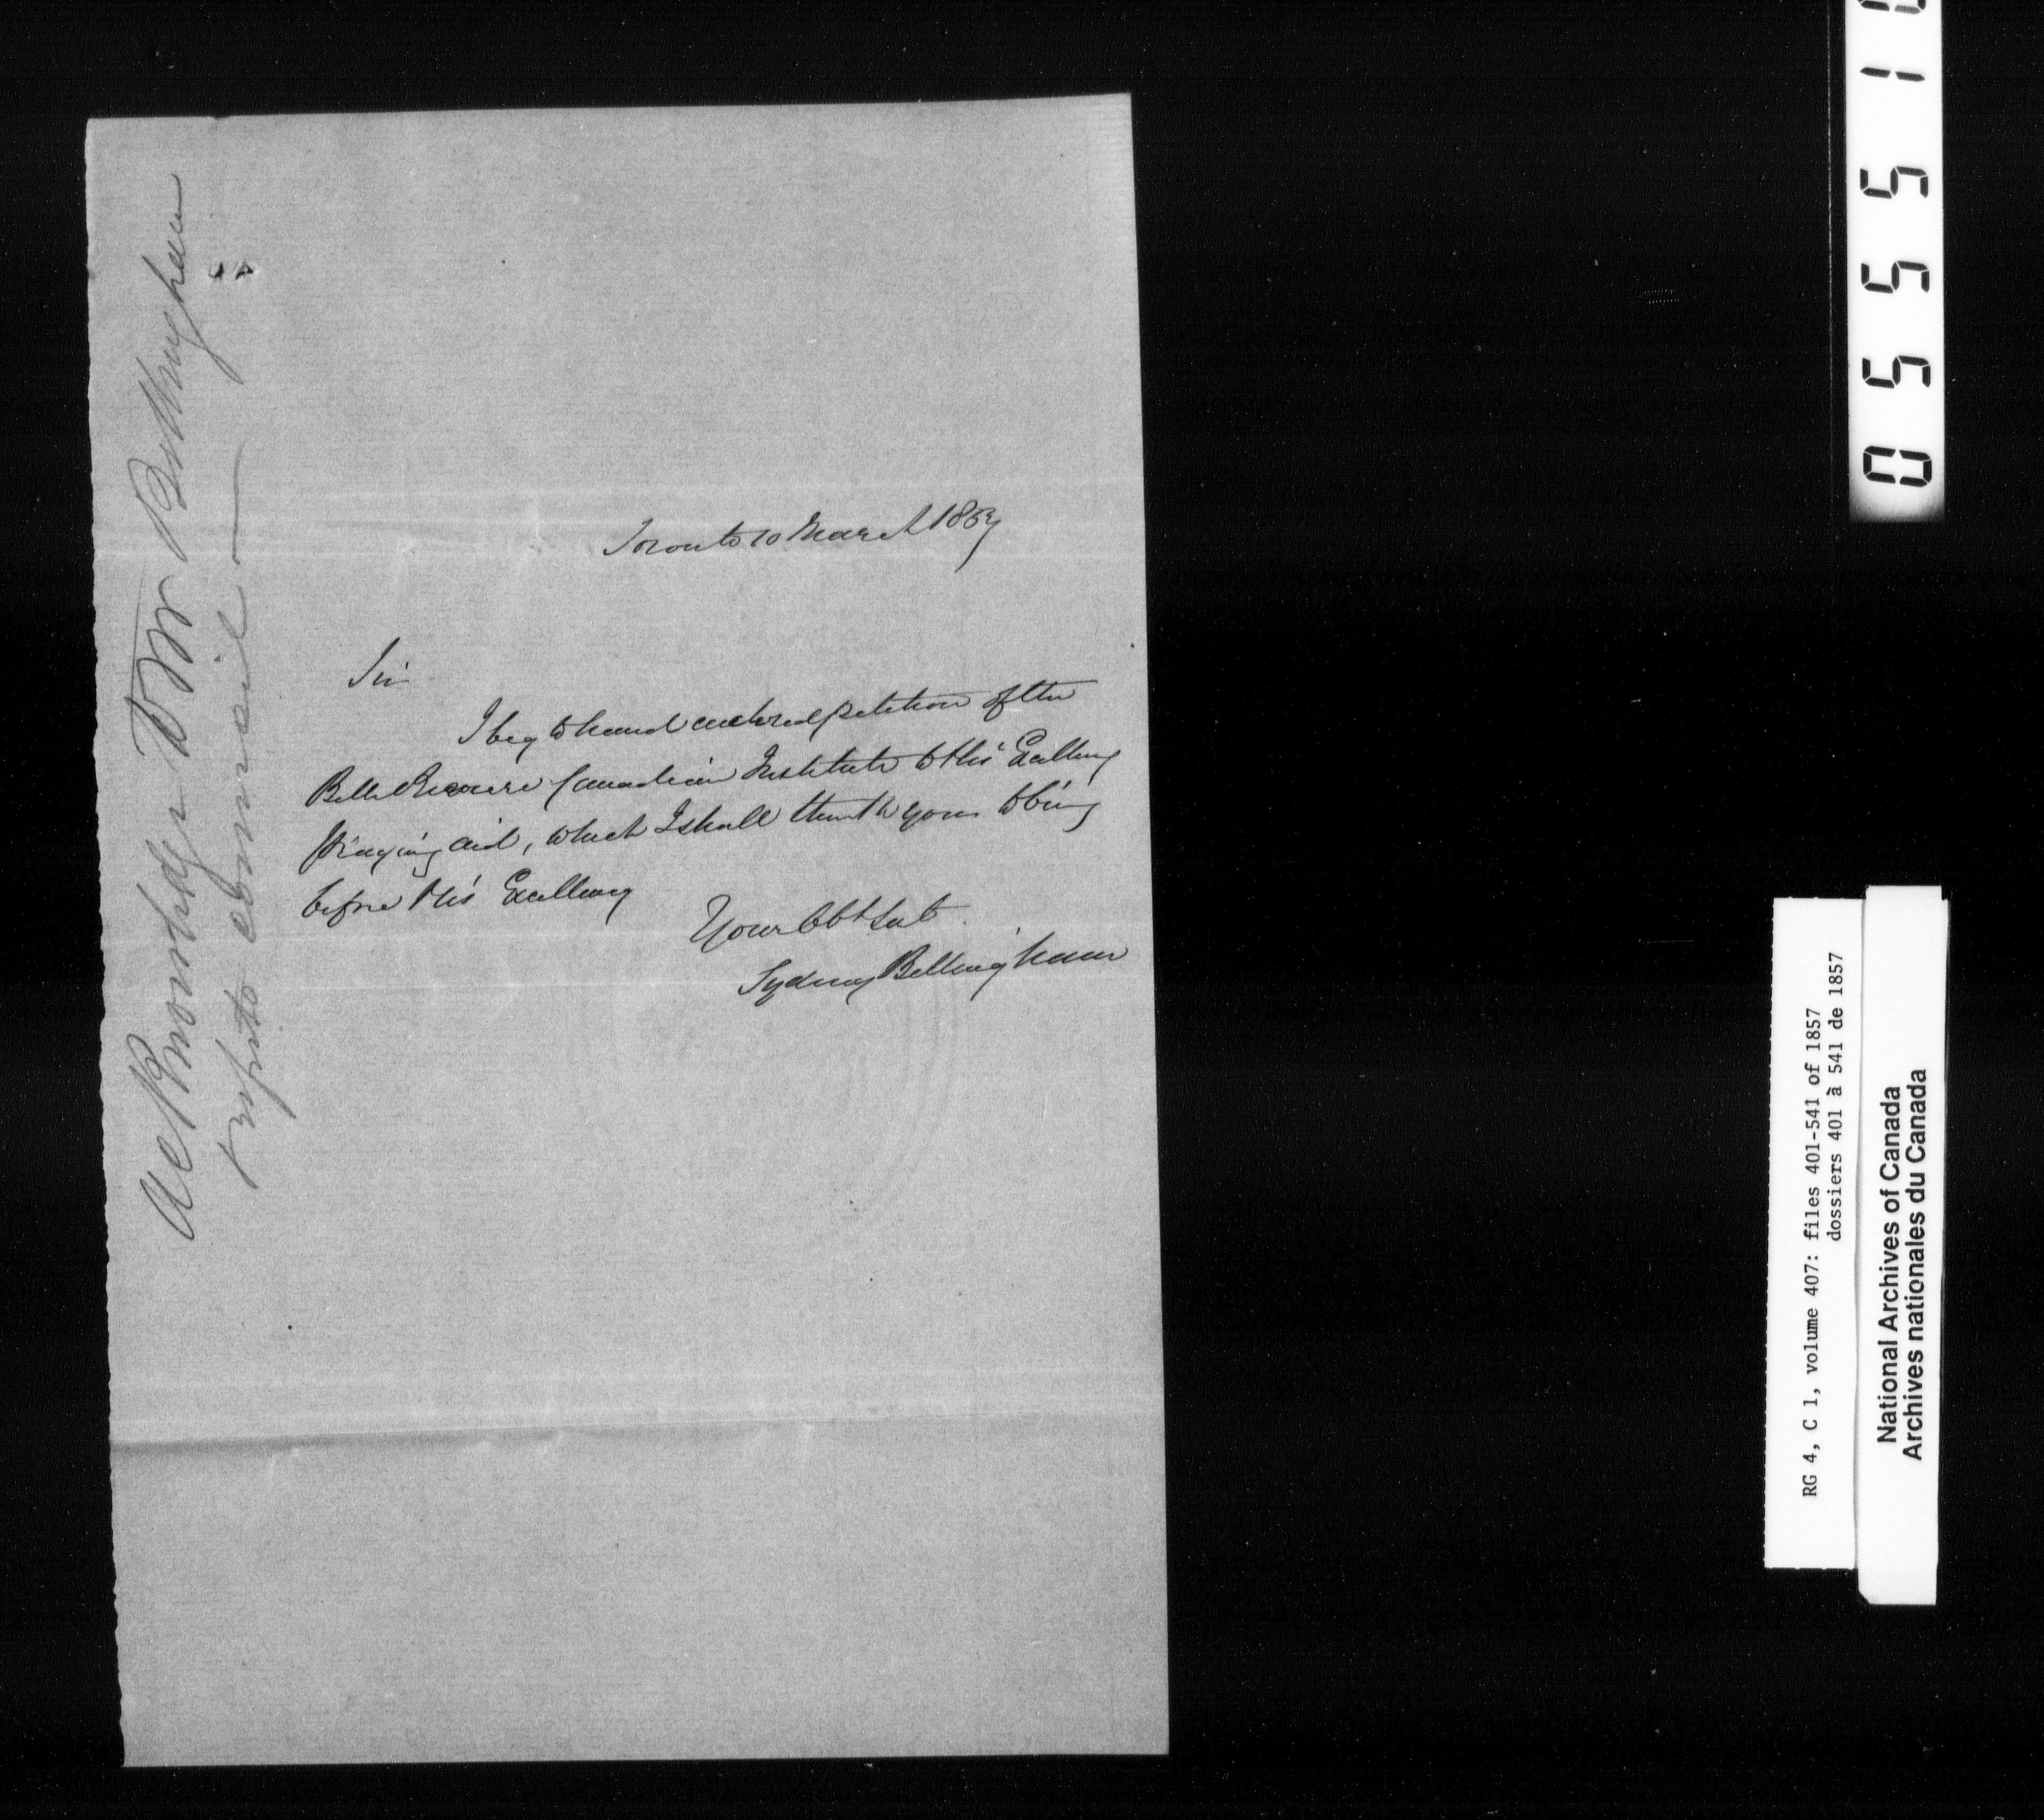 Toronto 10 March 1857
Sir
I beg to hand enclosed petition of the
Belle Riviere Canadian Institute to His Excellency
praying aid, which I shall thank you to bring
before His Excellency
Your Obt Svt
Sydney Bellingham
Acknowledge to Mr Bellingham
& refer to Council
0 5 5 5 1
RG 4, C 1, volume 407: files 401-541 of 1857
dossiers 401 à 541 de 1857
National Archives of Canada
Archives nationales du Canada